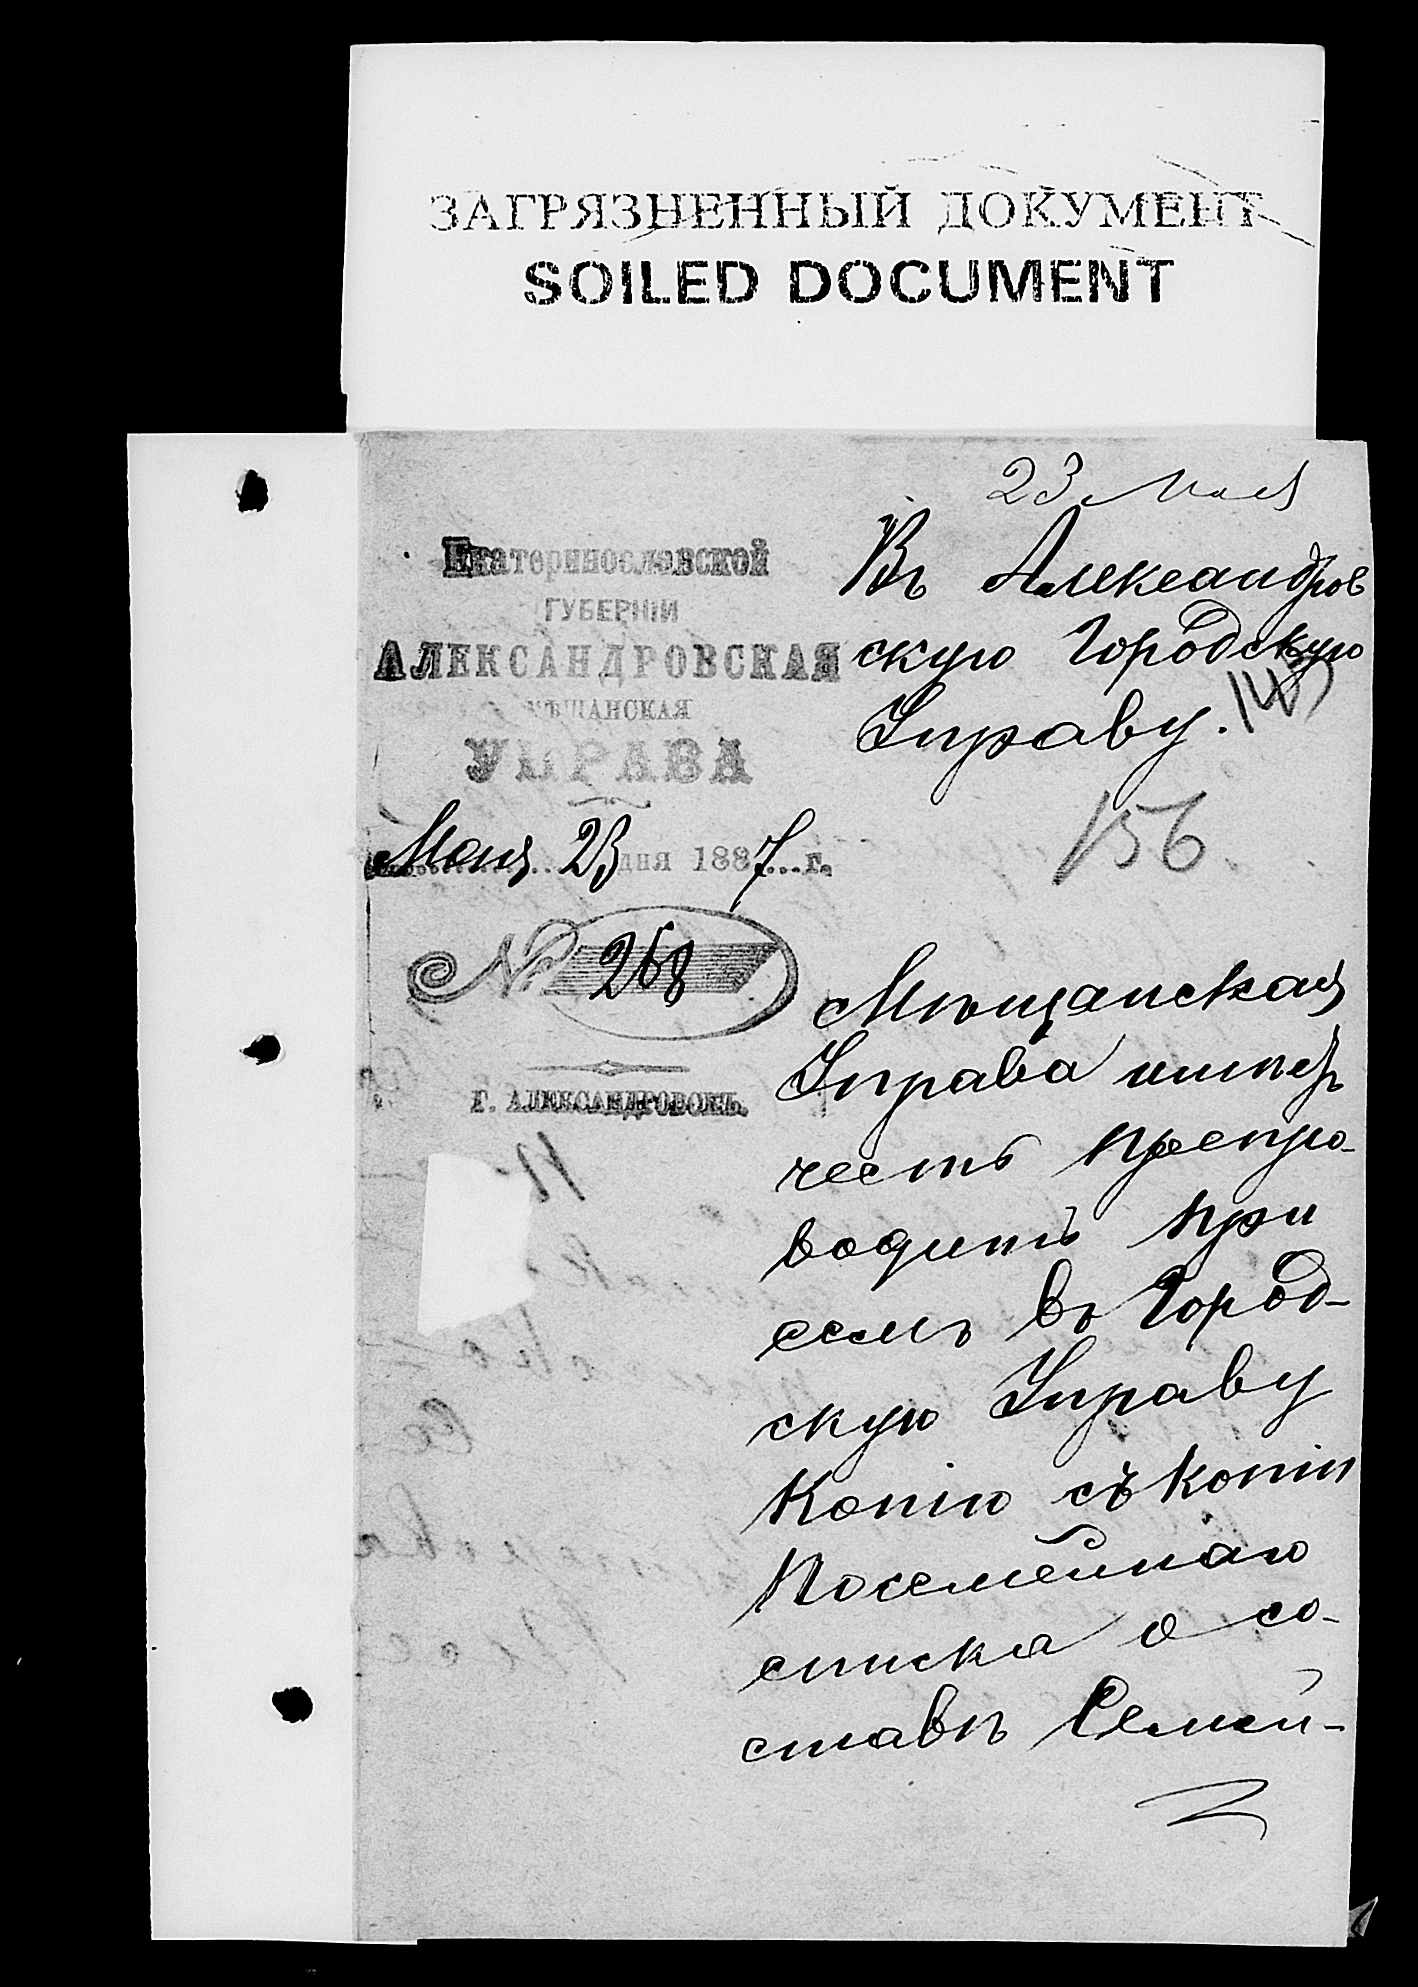 ЗАГРЯЗНЕННЫЙ ДОКУМЕНТ
SOILED DOCUMENT
23 Мая
Екатеринославской
ГУБЕРНІИ
АЛЕКСАНДРОВСКАЯ
МѢЩАНСКАЯ
УПРАВА
Мая 23 дня 1887 г.
№ 268
г. АЛЕКСАНДРОВСКЪ.
Въ Александров
скую Городскую
Управу.
156
Мѣщанская
Управа имѣетъ
честь препро-
водить при
семъ въ Город-
скую Управу
Копію съ копіи
Посемейнаго
списка о со-
ставѣ Семей-